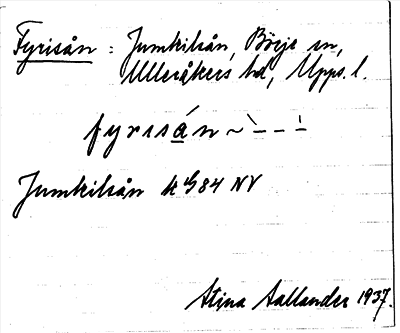 Fyrisån : Jumkilsån, Börje sn,
Ulleråkers hd, Upps. l.
fyrisån ~ `– – ´–
Jumkilsån k G84 NV
Stina Sallander 1937.